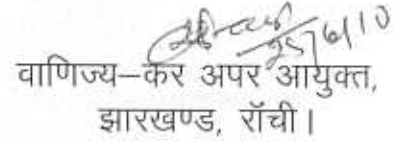 25/6/10
वाणिज्य–कर अपर आयुक्त,
झारखण्ड, रॉची।